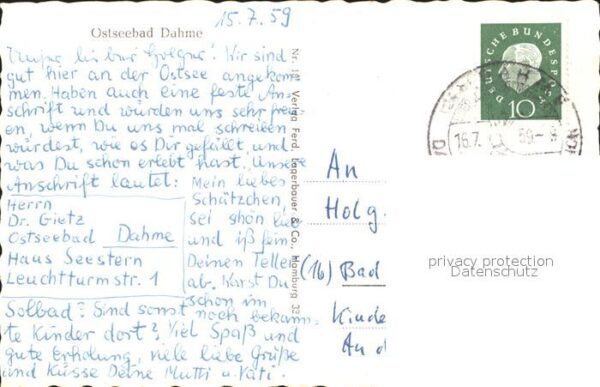 15.7.59
Ostseebad Dahme
lieber Holger! Wir sind
gut hier an der Ostsee angekom
men. Haben auch eine feste An-
schrift und würden uns sehr freu
en, wenn Du uns mal schreiben
würdest, wie es Dir gefällt und
was Du schon erlebt hast. Unsre
Anschrift lautet:
Herrn
Dr. Gietz
Ostseebad Dahme
Haus Seestern
Leuchtturmstr. 1
Mein liebes
Schätzchen,
sei schön lieb
und iß fein
Deinen Teller
ab. Warst Du
schon im
Solbad? Sind sonst noch bekann-
te Kinder dort? Viel Spaß und
gute Erholung, viele liebe Grüße
und Küsse Deine Mutti u. Vati.
Verlag Ferd. Lagerbauer & Co., Hamburg
DEUTSCHE BUNDESPOST
10
16.7.
59.-9
An
Holg
(16) Bad
Kinde
An d
privacy protection
Datenschutz